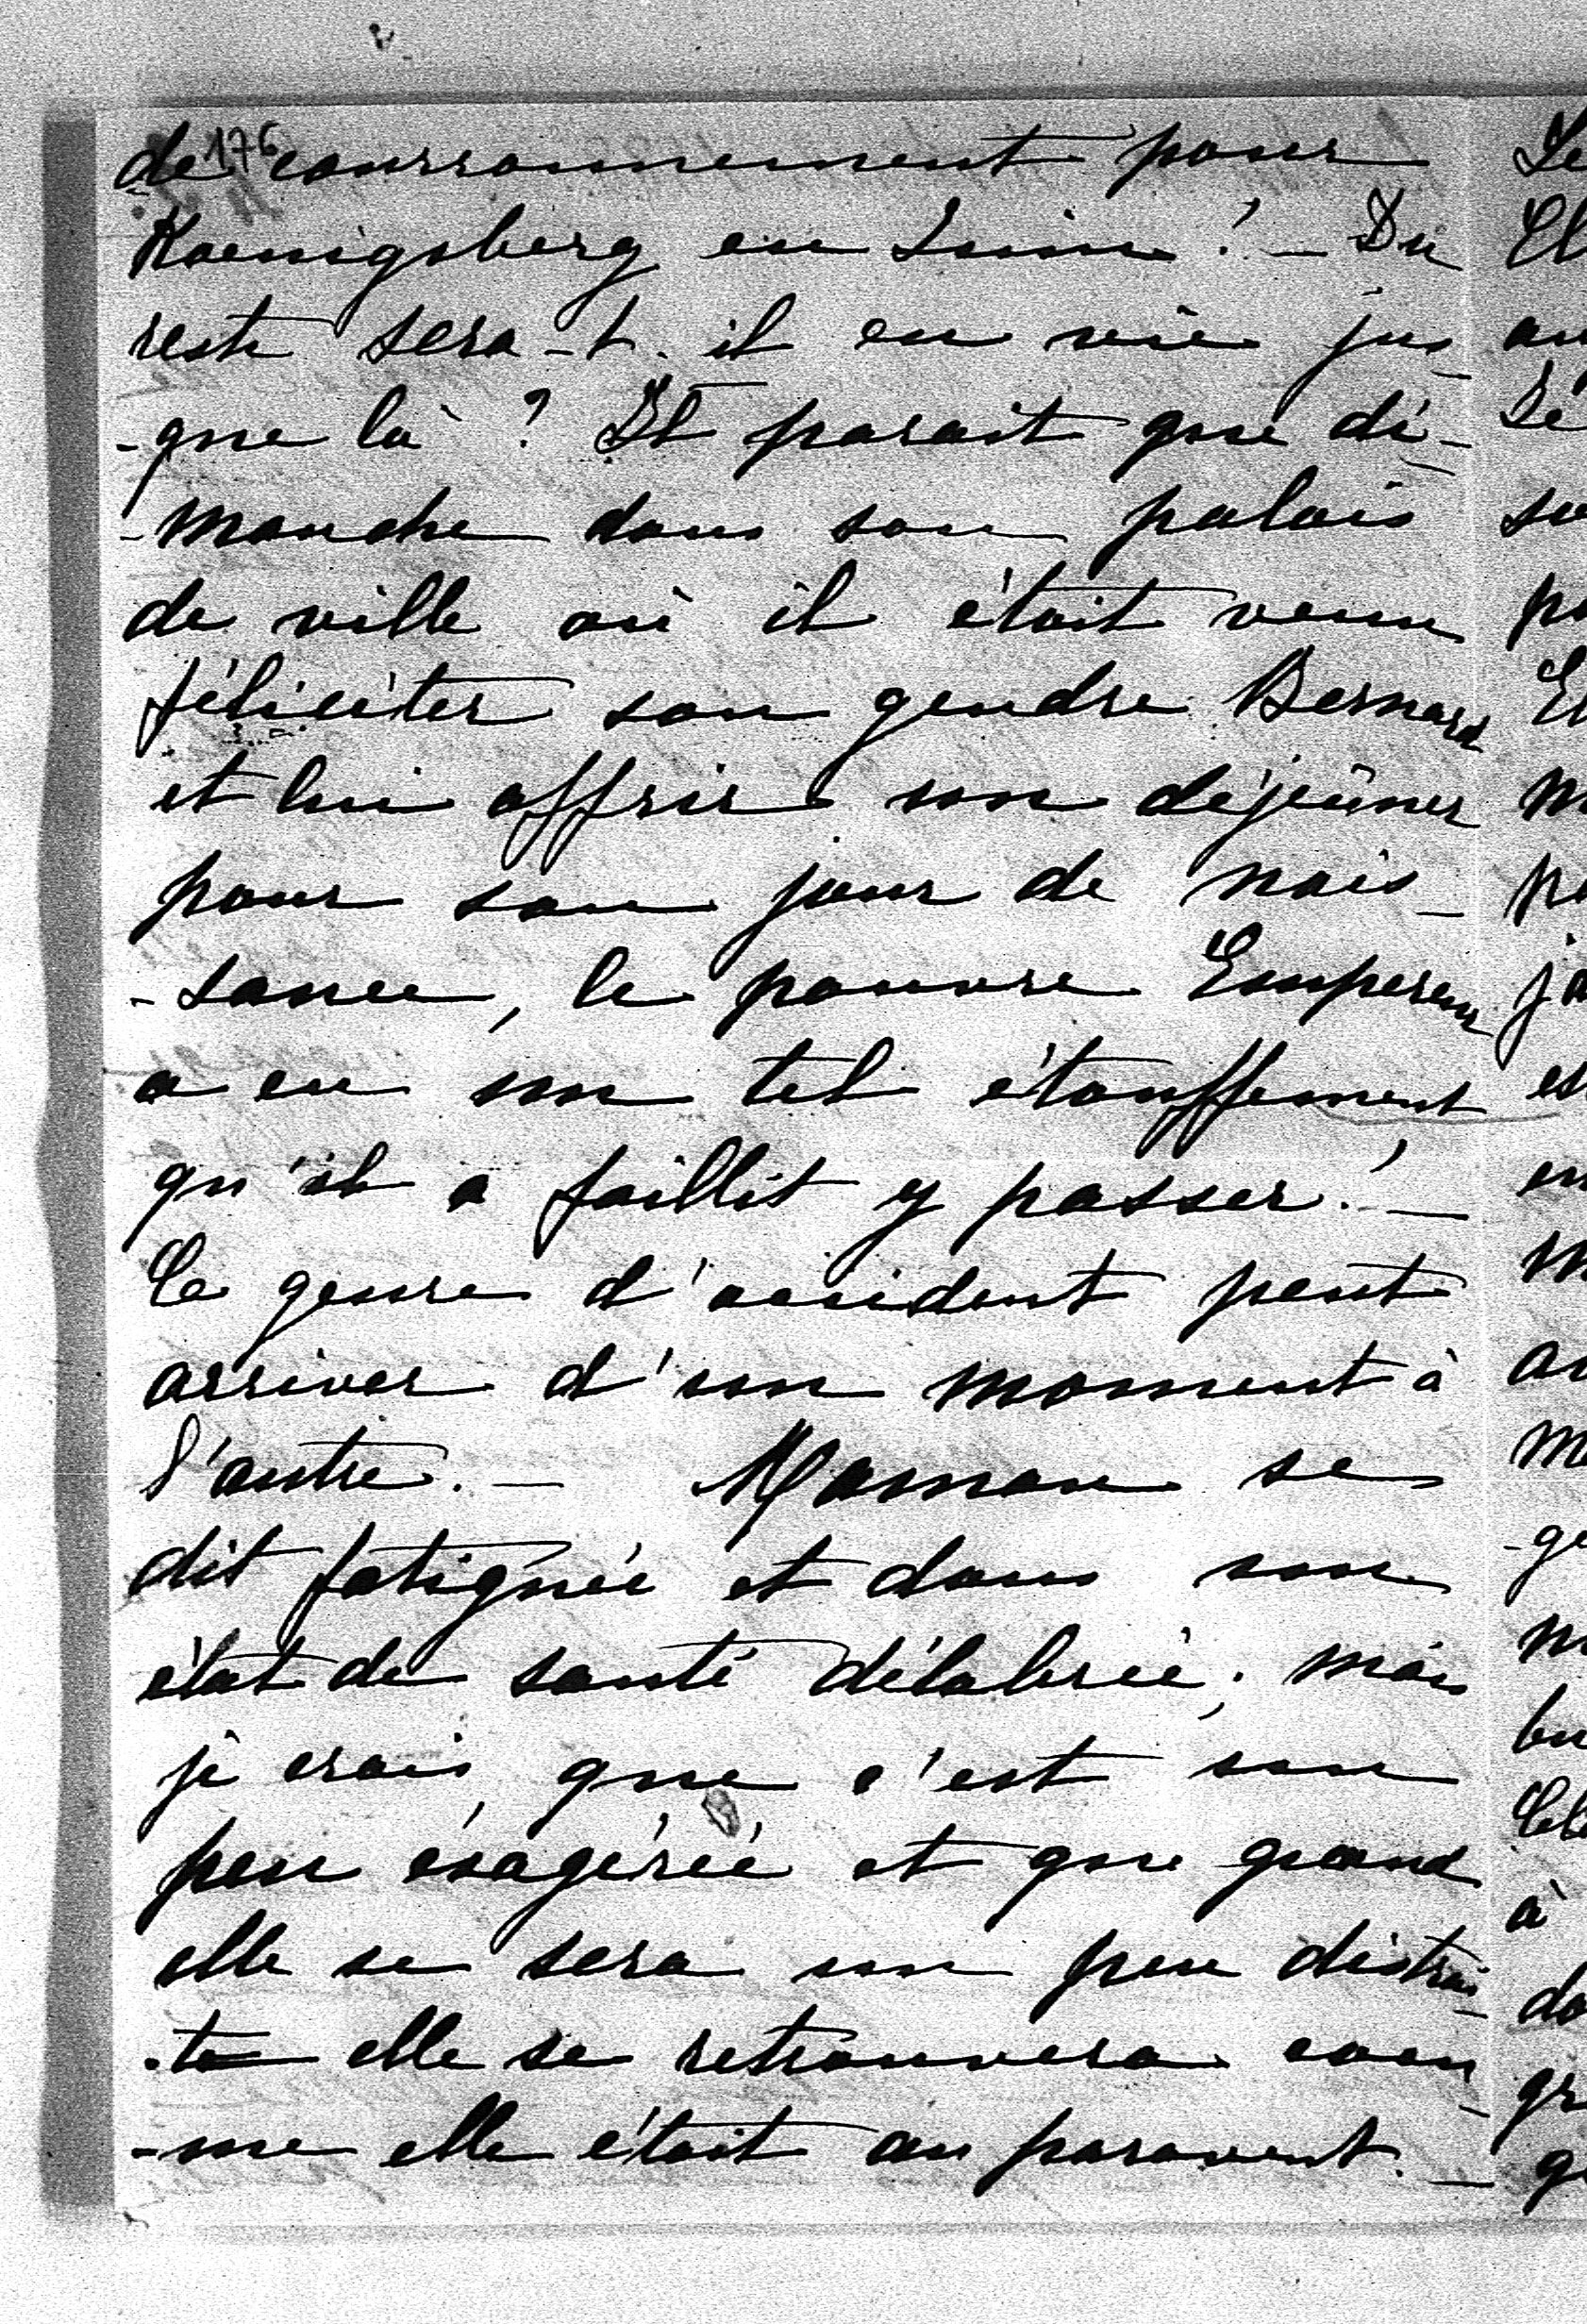 176
de couronnement pour
Koenigsberg en Juin! — Du
reste sera-t-il en vie jus-
-que là? Il parait que di-
-manche dans son palais
de ville où il était venu
féliciter son gendre Bernard
et lui offrir un déjeûner
pour son jour de nais-
-sance, le pauvre Empereur
a eu un tel étouffement
qu'il a faillit y passer! —
Ce genre d'accident peut
arriver d'un moment à
l'autre. — Maman se
dit fatiguée et dans un
état de santé délabrée; mais
je crois que c'est un
peu éxagérée et que quand
elle se sera un peu distrai-
-te elle se retrouvera com-
-me elle était au paravent. —